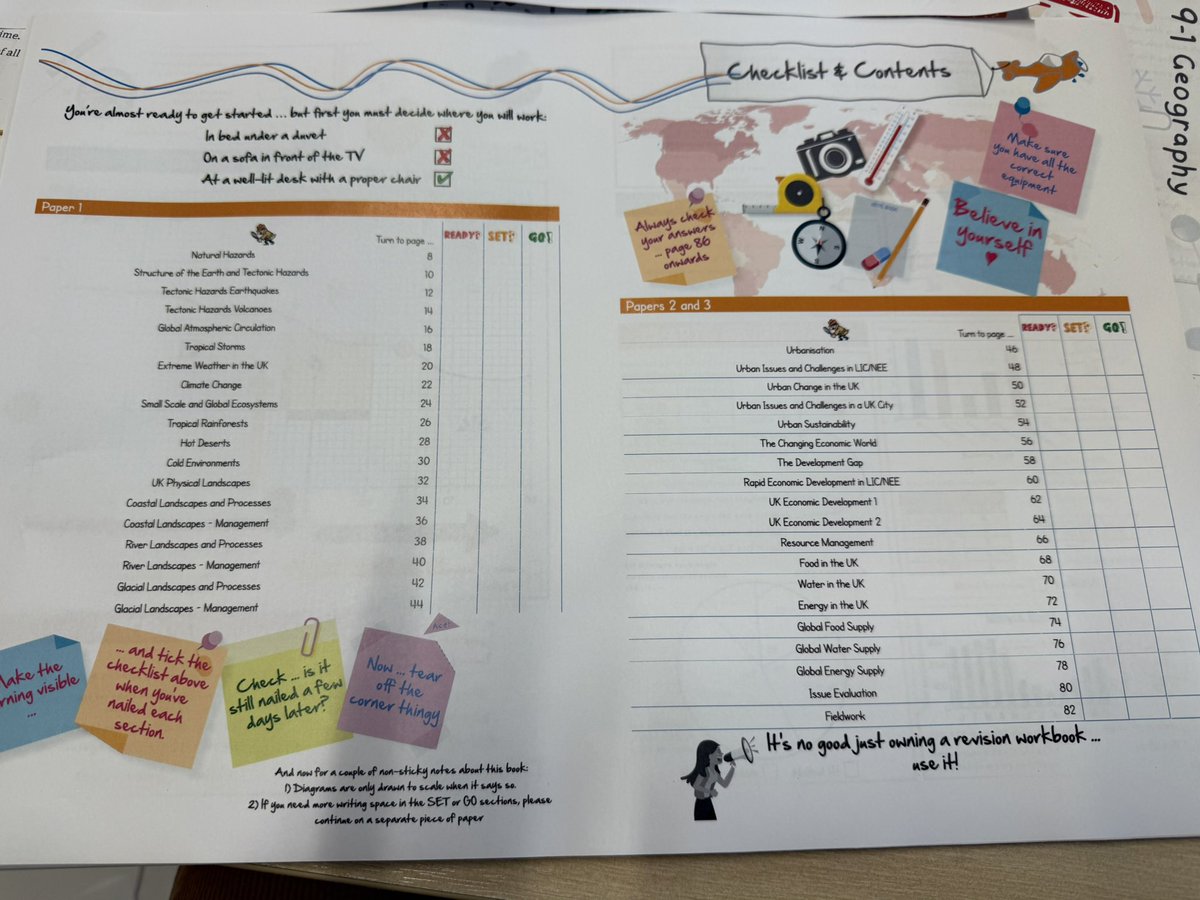 ime.
of all
9-1 Geography
Checklist & Contents
You're almost ready to get started ... but first you must decide where you will work:
In bed under a duvet
On a sofa in front of the TV
At a well-lit desk with a proper chair
Paper 1
Turn to page ... READY? SET? GO!
Natural Hazards 8
Structure of the Earth and Tectonic Hazards 10
Tectonic Hazards Earthquakes 12
Tectonic Hazards Volcanoes 14
Global Atmospheric Circulation 16
Tropical Storms 18
Extreme Weather in the UK 20
Climate Change 22
Small Scale and Global Ecosystems 24
Tropical Rainforests 26
Hot Deserts 28
Cold Environments 30
UK Physical Landscapes 32
Coastal Landscapes and Processes 34
Coastal Landscapes - Management 36
River Landscapes and Processes 38
River Landscapes - Management 40
Glacial Landscapes and Processes 42
Glacial Landscapes - Management 44
Make the
rning visible
...
... and tick the
checklist above
when you've
nailed each
section.
Check ... is it
still nailed a few
days later?
Now ... tear
off the
corner thingy
Ace!
And now for a couple of non-sticky notes about this book:
1) Diagrams are only drawn to scale when it says so.
2) If you need more writing space in the SET or GO sections, please
continue on a separate piece of paper
Always check
your answers
... page 86
onwards
Make sure
you have all the
correct
equipment
Believe in
yourself
N
E
S
W
Papers 2 and 3
Turn to page ... READY? SET? GO!
Urbanisation 46
Urban Issues and Challenges in LIC/NEE 48
Urban Change in the UK 50
Urban Issues and Challenges in a UK City 52
Urban Sustainability 54
The Changing Economic World 56
The Development Gap 58
Rapid Economic Development in LIC/NEE 60
UK Economic Development 1 62
UK Economic Development 2 64
Resource Management 66
Food in the UK 68
Water in the UK 70
Energy in the UK 72
Global Food Supply 74
Global Water Supply 76
Global Energy Supply 78
Issue Evaluation 80
Fieldwork 82
It's no good just owning a revision workbook ...
use it!